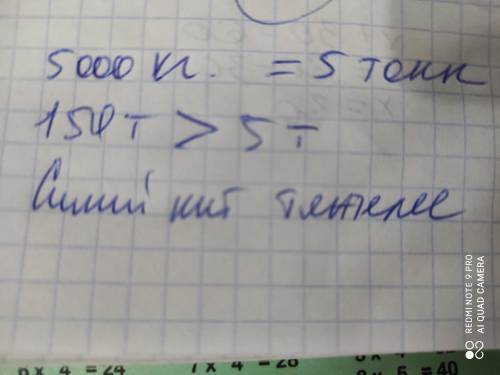 5000 кг. = 5 тонн
150 т > 5 т
Синий кит тяжелее
REDMI NOTE 9 PRO
AI QUAD CAMERA
x 4 = 24
7 x 4 = 28
x 5 = 40